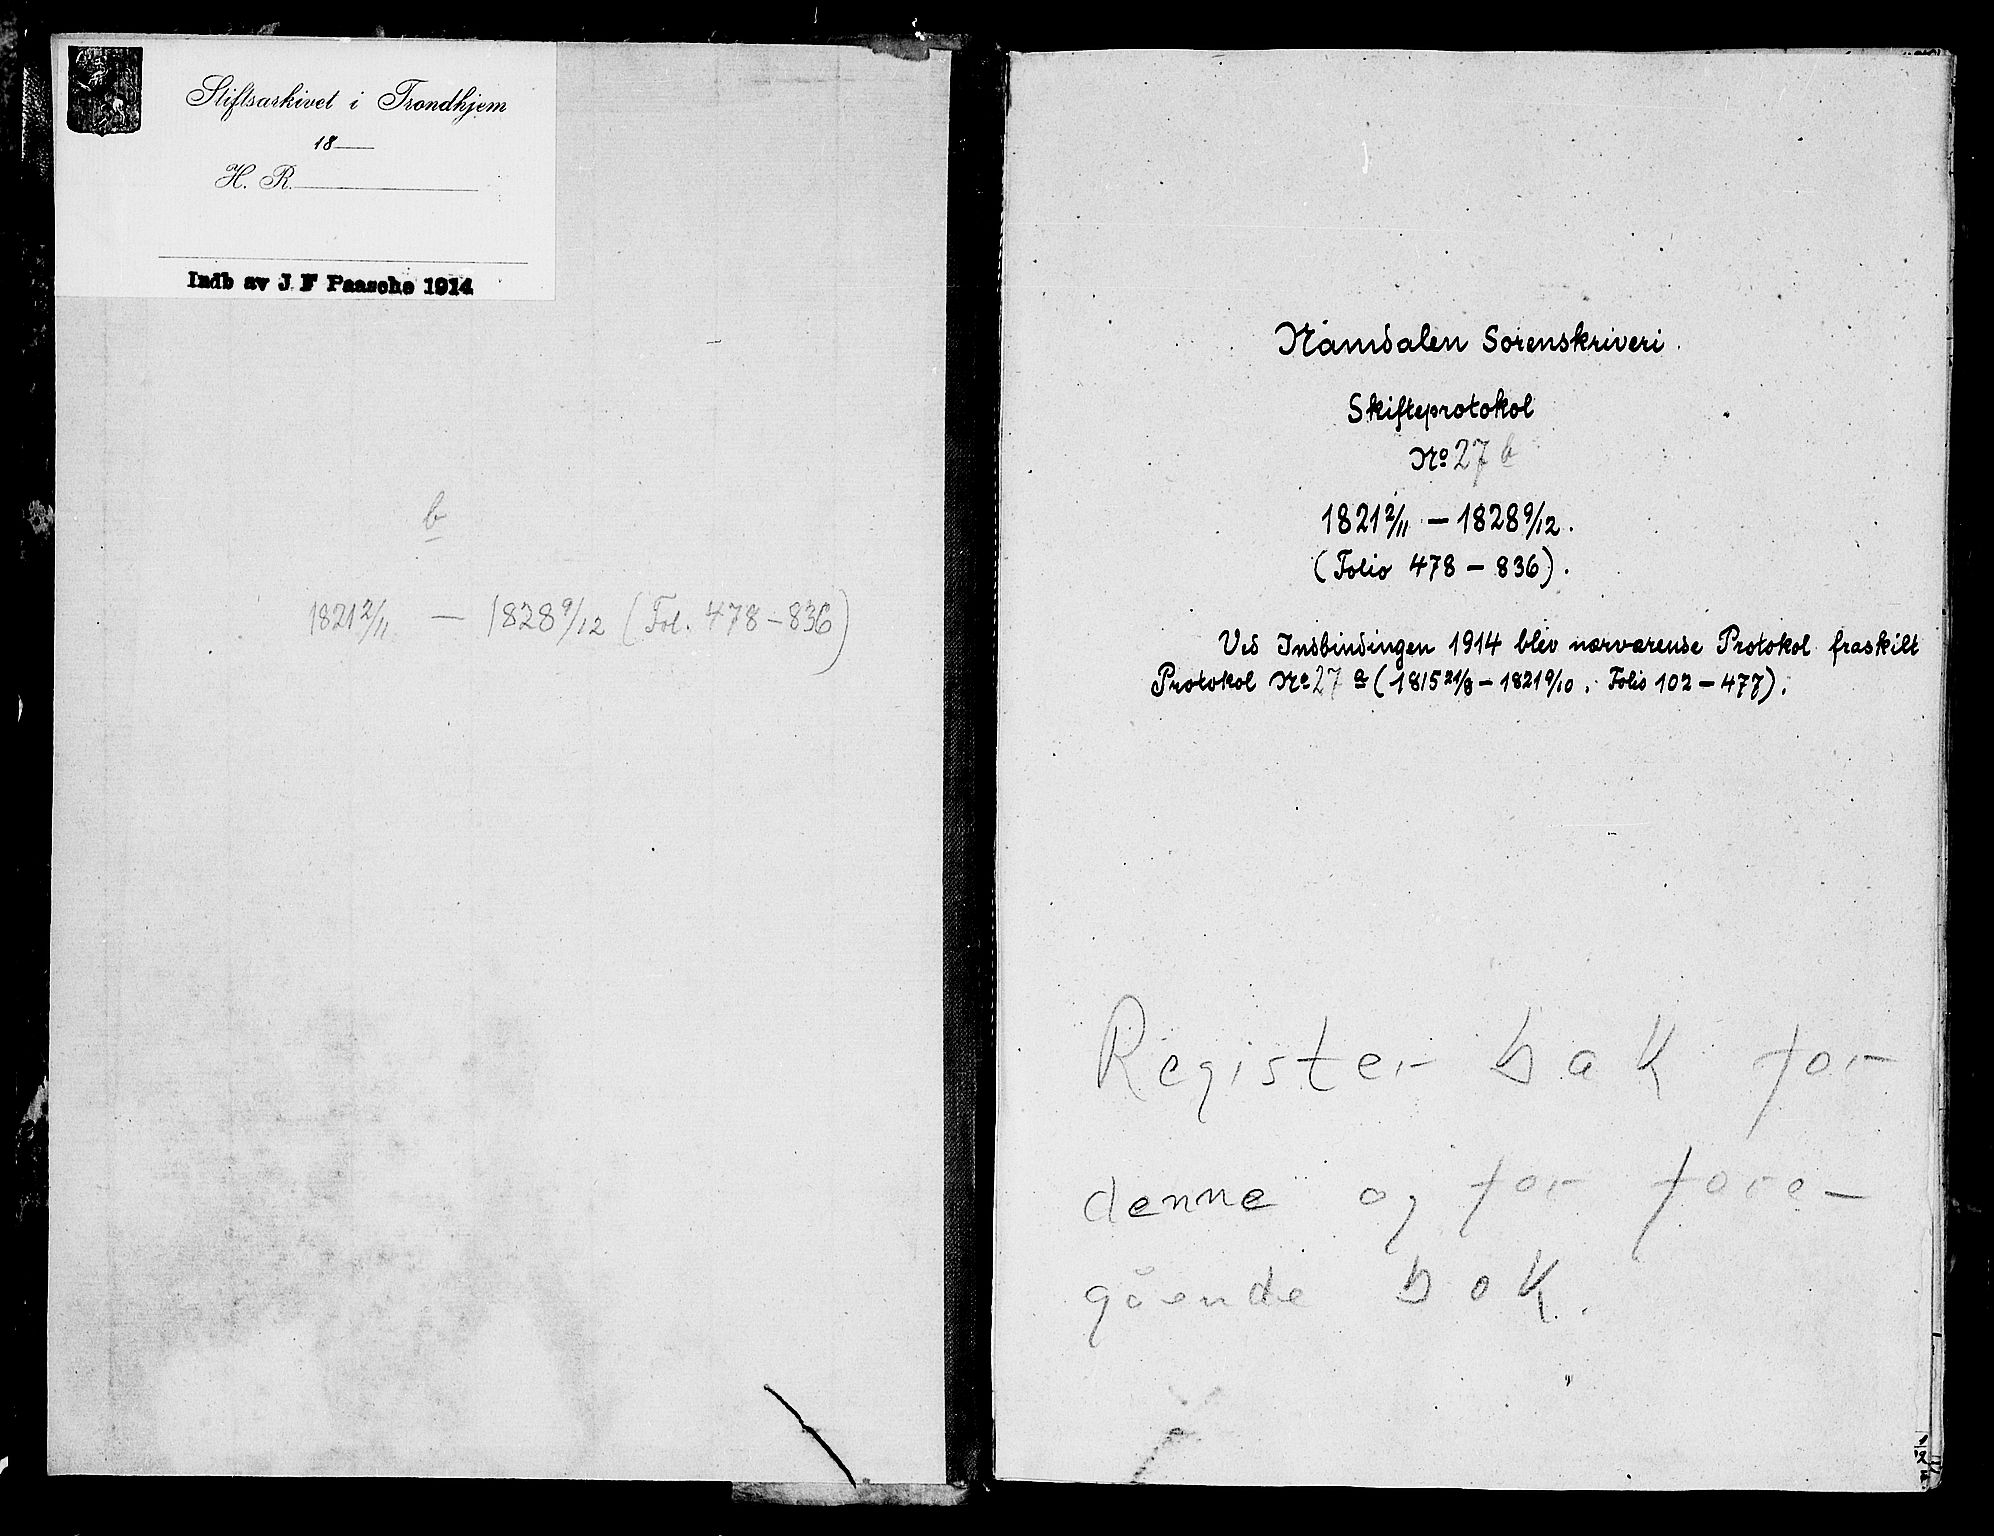 Stiftsarkivet i Trondhjem
18
H. R.
Indb av J F Paasche 1914
b
1821 2/11 — 1828 9/12 (Fol. 478-836)
Namdalen Sorenskriveri.
Skifteprotokol
No 27 b
1821 2/11 — 1828 9/12.
(Folio 478 – 836).
Ved Indbindingen 1914 blev nærværende Protokol fraskilt
Protokol No 27 a (1815 21/8 – 1821 9/10. Folio 102 – 477).
Register bak for
denne og for fore-
gående bok.